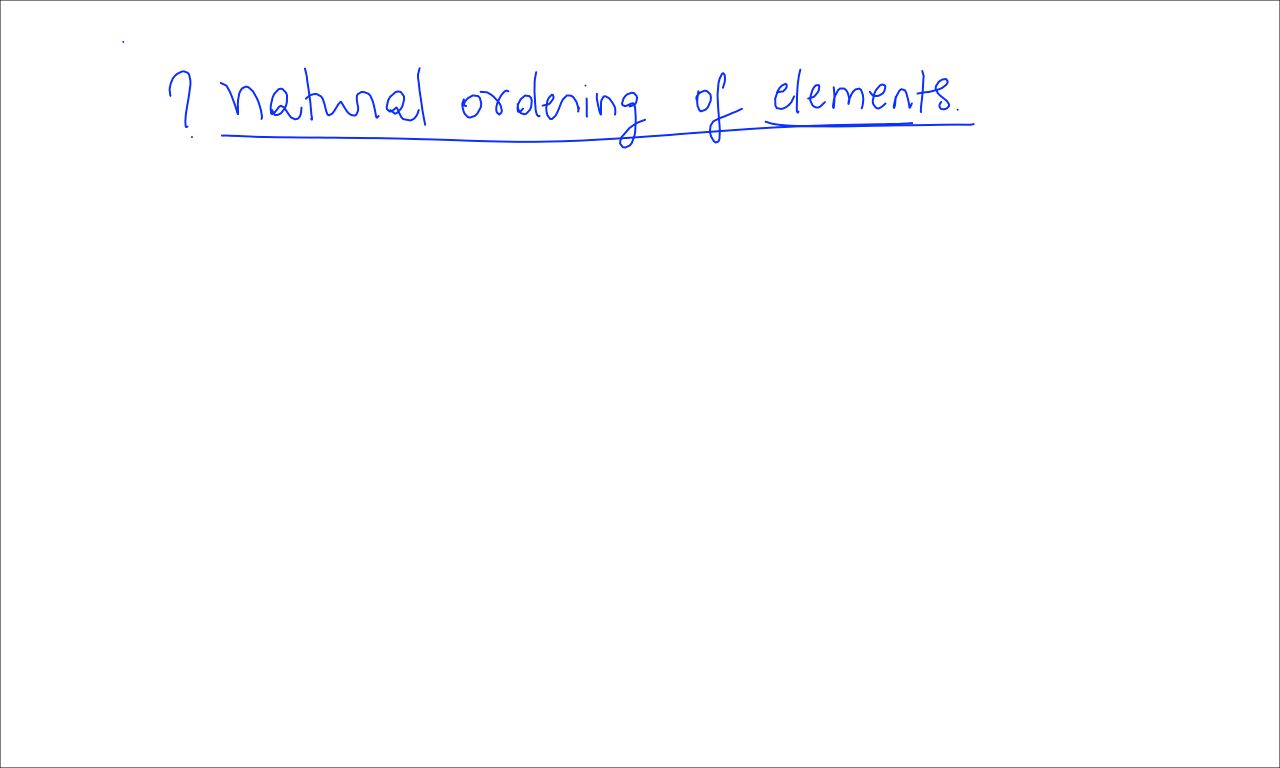 ? natural ordering of elements.